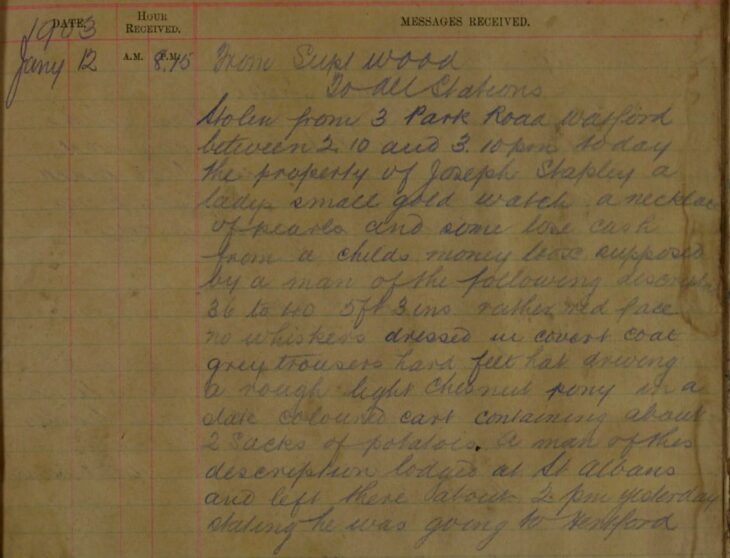 DATE.
HOUR RECEIVED.
MESSAGES RECEIVED.
1903
Jany 12
A.M. P.M.
8.45
From Supt Wood
To all Stations
Stolen from 3 Park Road Watford
between 2.10 and 3.10 pm to day
the property of Joseph Stapley a
ladys small gold watch a necklac
of pearls and some lose cash
from a childs money box supposed
by a man of the following descript
36 to 40 5ft 3 ins rather red face
no whiskers dressed in covert coat
grey trousers hard felt hat driving
a rough light Chesnut pony in a
slate coloured cart containing about
2 Sacks of potatoes. A man of this
description lodged at St Albans
and left there about 2 pm yesterday
stating he was going to Hertford